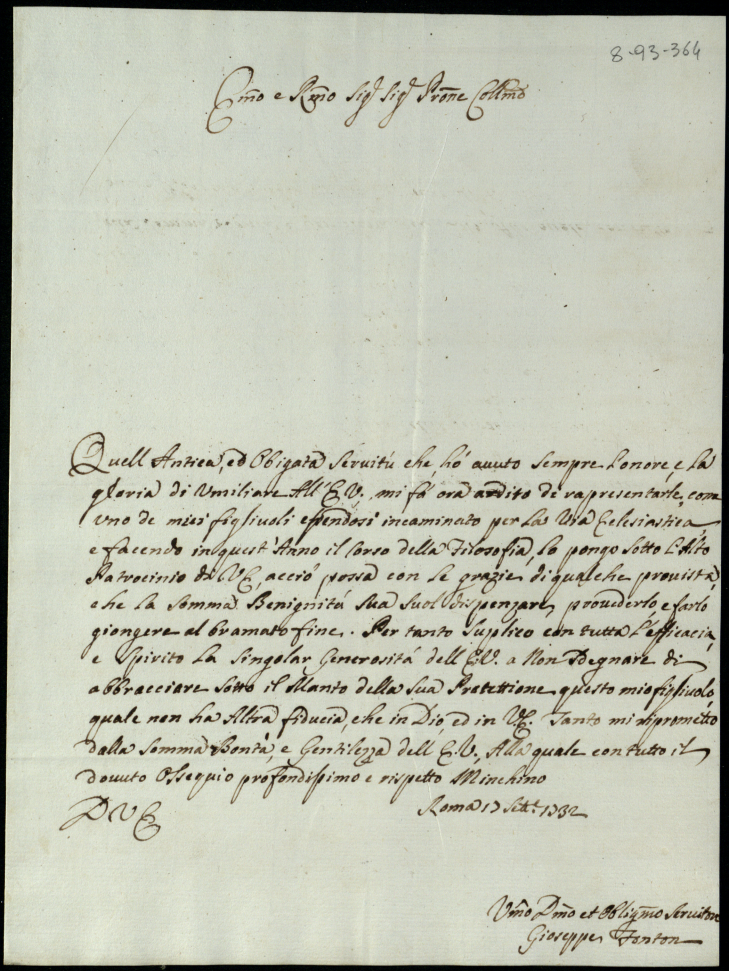 8-93-364
Emo e Rmo Sigr Sigr Prone Collmo
Quell Antica, ed Obligata Servitú che hó auuto sempre l'onore, e la
gloria di Umiliare All'E.V., mi fá ora ardito di rapresentarle, come
uno de miei figliuoli essendosi incaminato per la Via Eclesiastica
e facendo in quest'Anno il Corso della Filosofia, lo pongo sotto l'Alto
Patrocinio di VE, acció possa con le grazie di qualche prouista,
che la somma Benignitá Sua suol dispenzare, prouederlo, e farlo
giongere al bramato fine. Per tanto Suplico con tutta l'efficacia,
e Spirito la singolar Generositá dell'E.V. a Non Sdegnare di
abbracciare sotto il Manto della Sua Protettione questo mio figliuolo,
quale non ha Altra fiducia, che in Dio, ed in VE. Tanto mi riprometto
dalla Somma Bontà, e Gentilezza dell E.V., Alla quale con tutto il
douuto Ossequio profondissimo e rispetto M'inchino
D V E
Roma 17 Sett. 1732
Umo Dmo et Obligmo Seruitore
Gioseppe Fonton